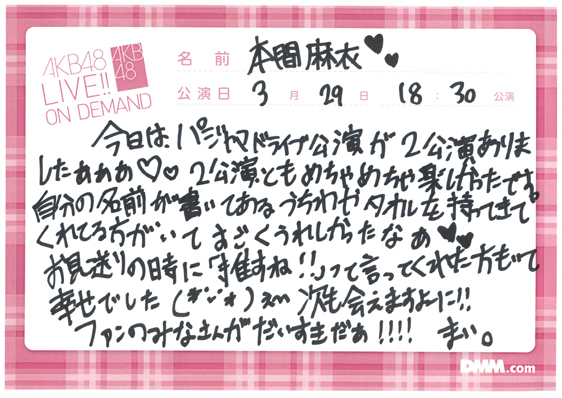 AKB48
LIVE!!
ON DEMAND
AKB
48
名前 本間麻衣♥♥
公演日 3月29日 18:30公演
今日はパジャマドライブ公演が2公演ありま
したぁぁぁ♡♥ 2公演ともめちゃめちゃ楽しかったです。
自分の名前が書いてあるうちわやタオルを持ってきて
くれてる方がいてすごくうれしかったなぁ♥♥
お見送りの時に「推すね!!」って言ってくれた方もいて
幸せでした 次も会えますように!!
ファンのみなさんがだいすきだぁ!!!! まい。
DMM.com